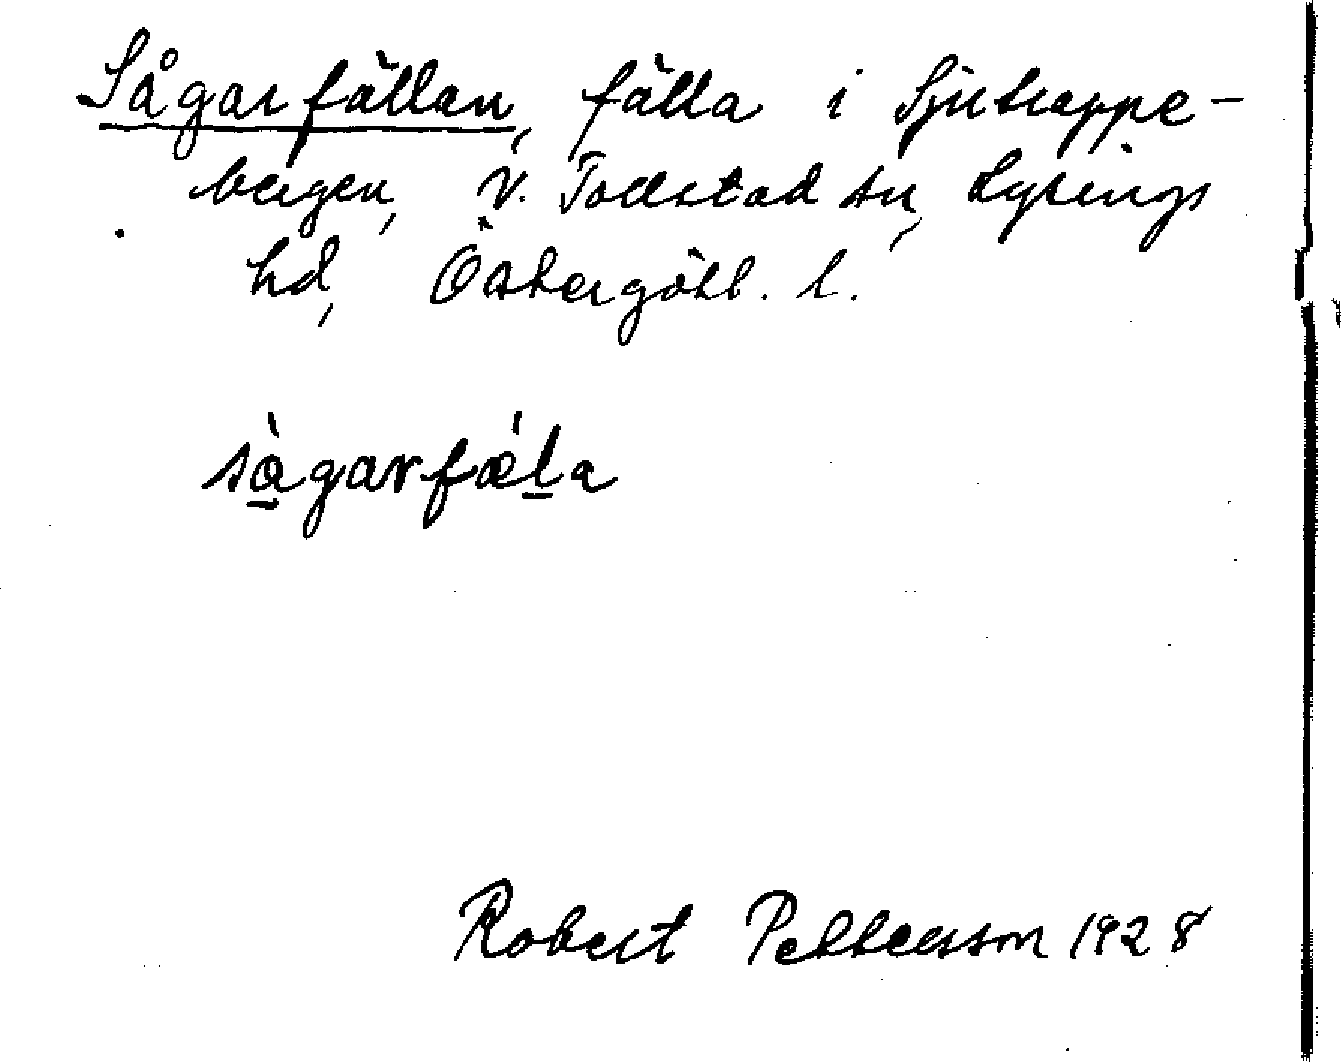 Sågarfällan, fälla i Sjutrappe-
bergen, V. Tollstad sn, Lysings
hd, Östergötl. l.
sågarfæla
Robert Pettersson 1928